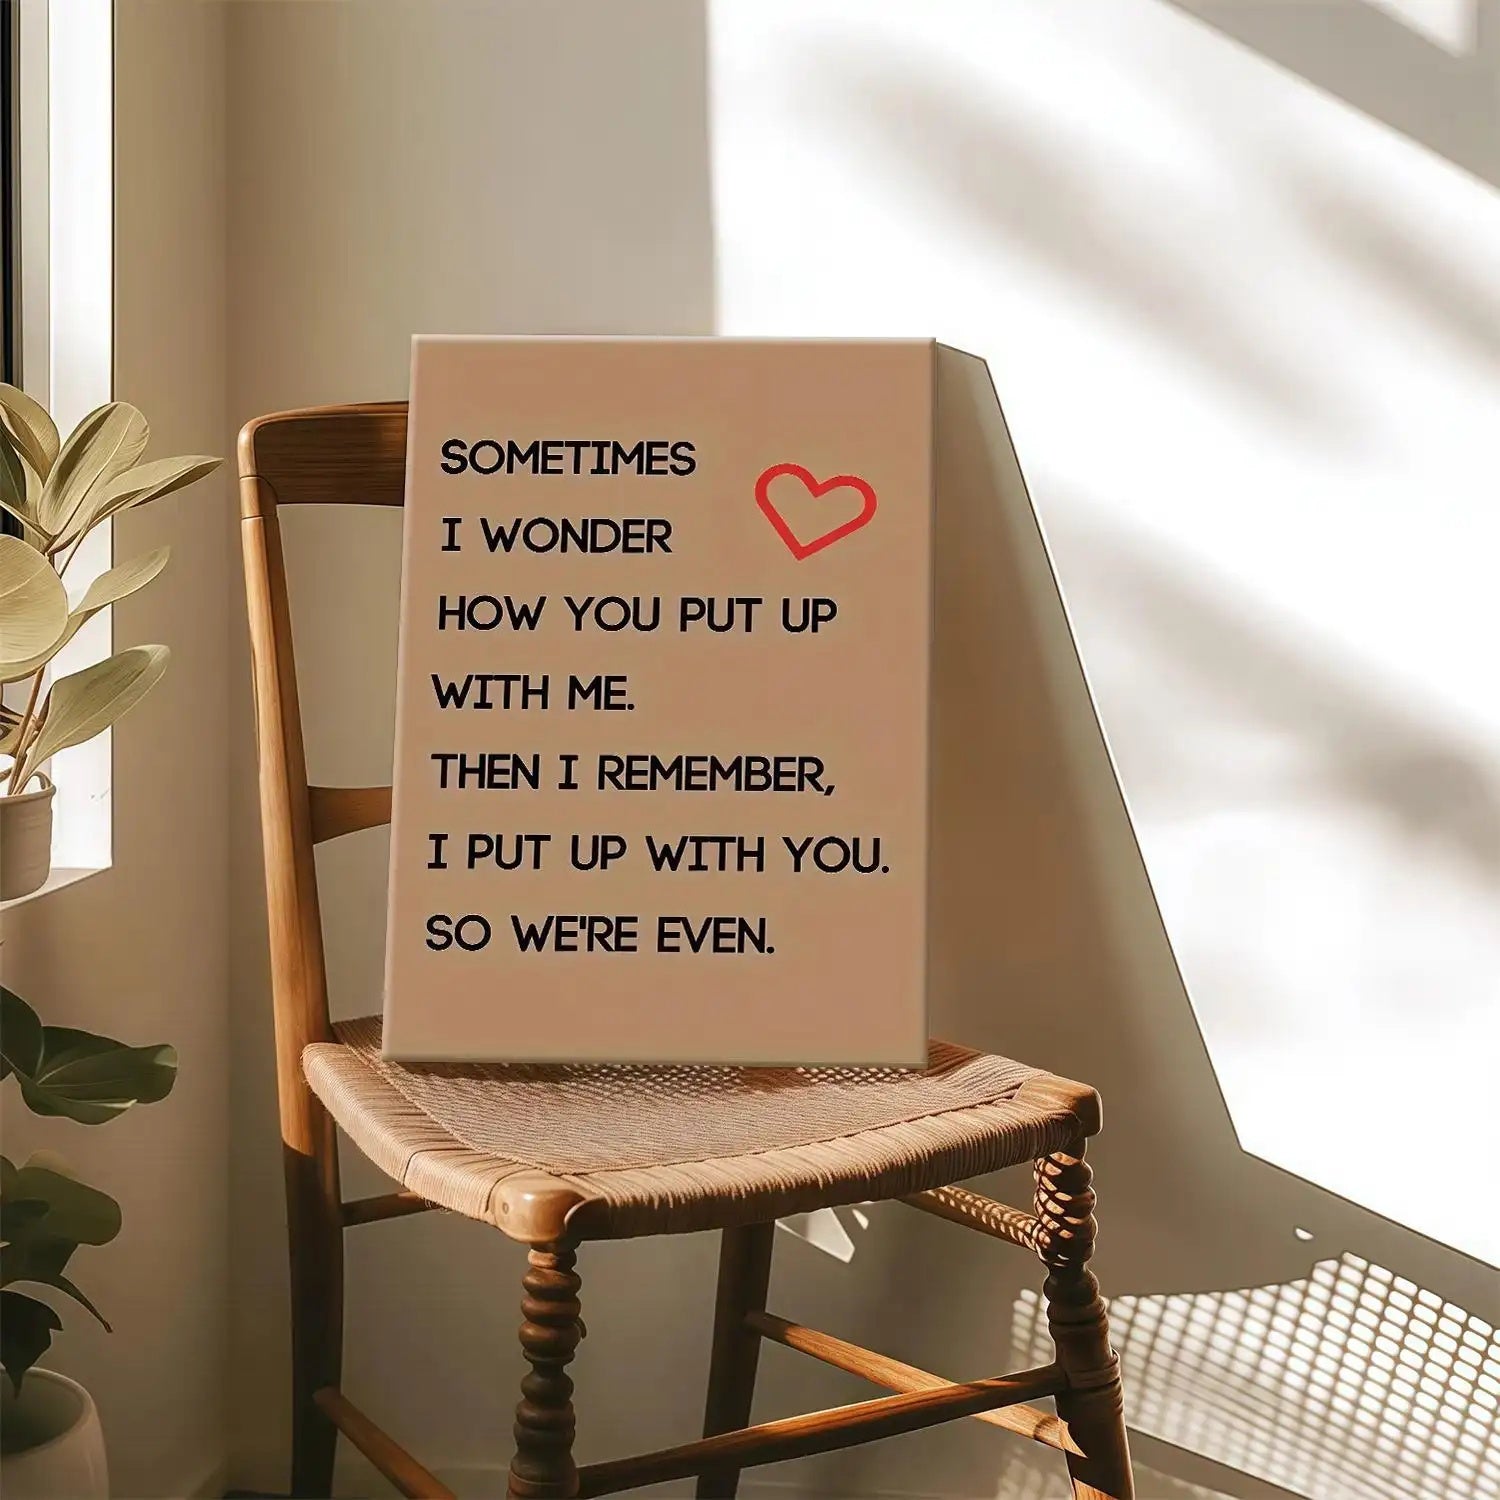 SOMETIMES
I WONDER
HOW YOU PUT UP
WITH ME.
THEN I REMEMBER,
I PUT UP WITH YOU.
SO WE'RE EVEN.